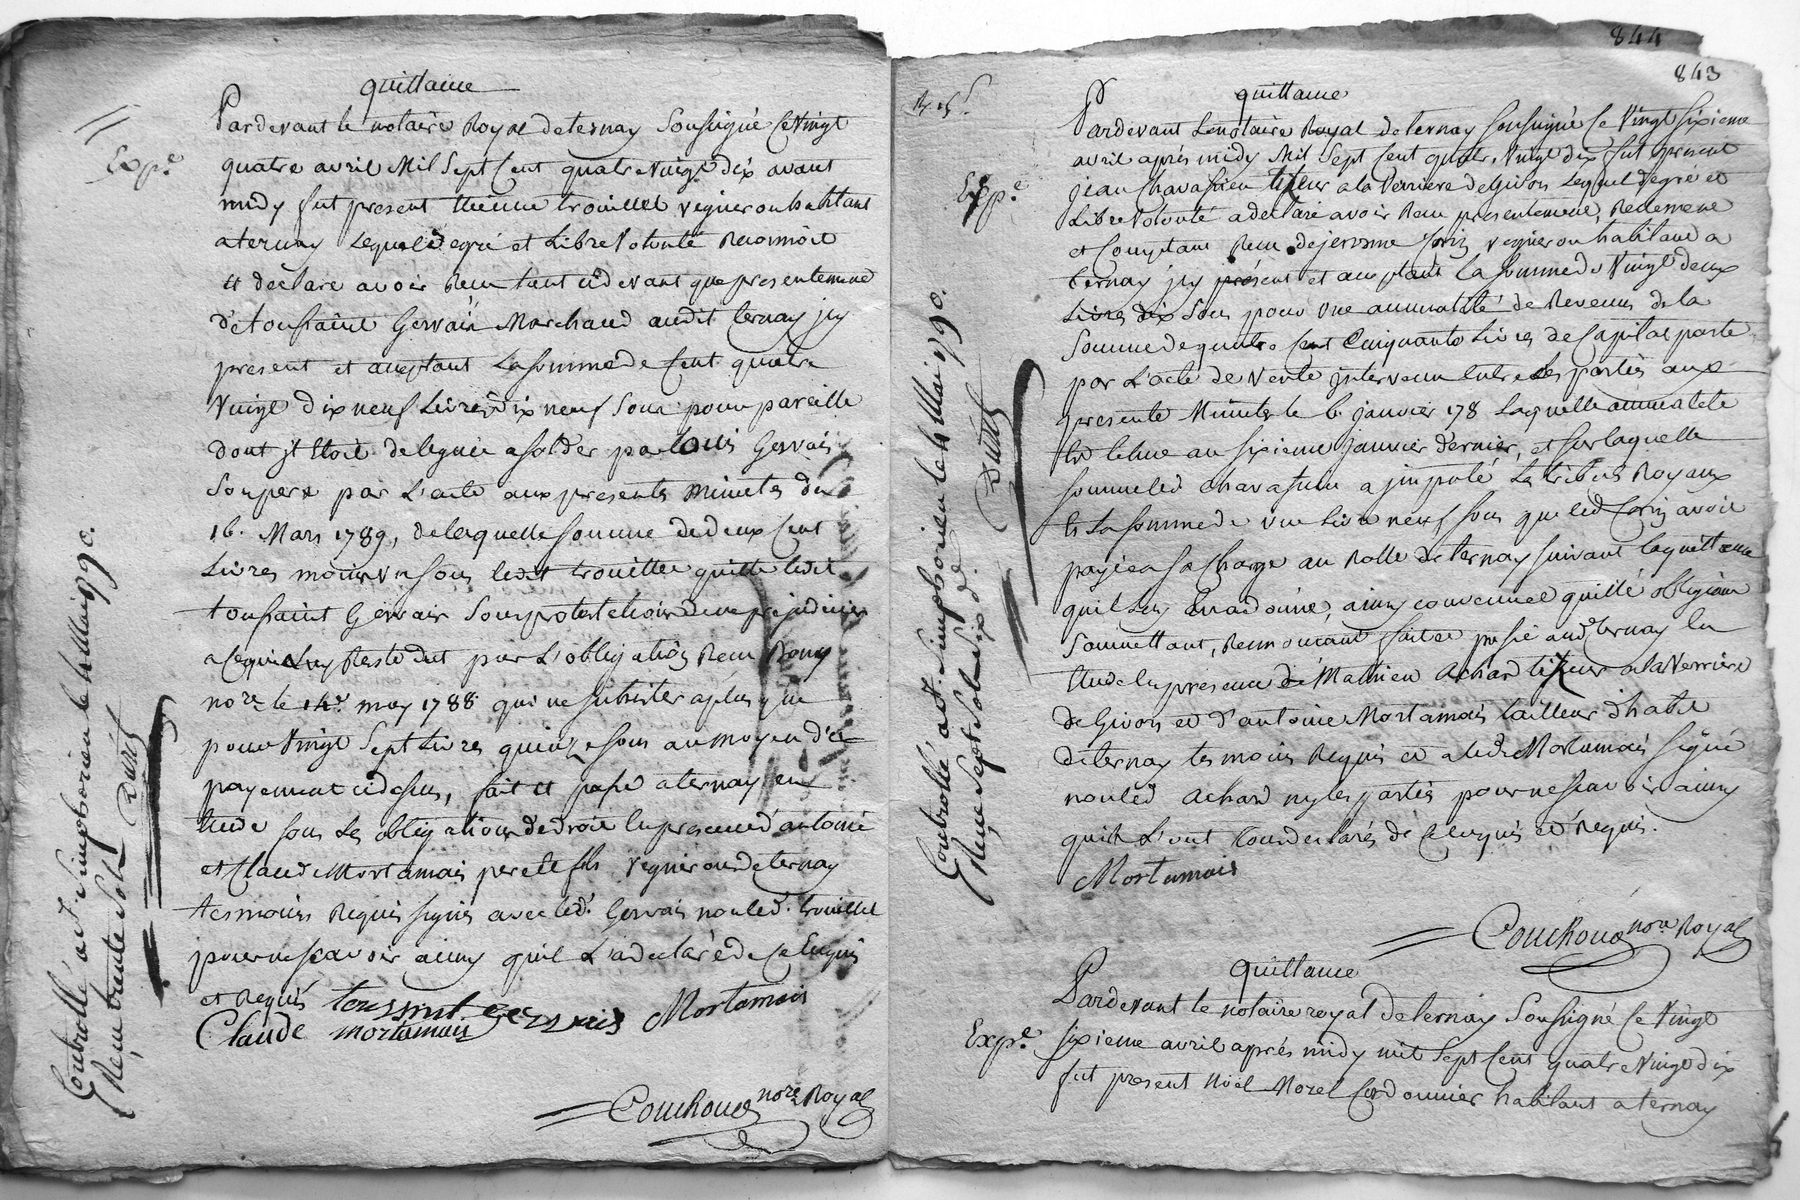 quittance
Pardevant le notaire Royal de ternay Soussigné Ce Vingt
quatre avril Mil Sept Cent quatre Vingt dix avant
midy fut present Etienne trouillet vigneron habitant
a ternay Lequel de gré et Libre Volonté Reconnoit
et declare avoir Reçu tant cidevant que presentement
de toussaint Gervais Marchand audit ternay jcy
present et aceptant La somme de Cent quatre
Vingt dix neuf Livres dix neuf Sous pour pareille
dont jl Etoit delegué a solder par Louis Gervais
Son pere par L'acte aux presents minutes du
16. Mars 1789, de laquelle somme de deux Cent
Livres moins un sous ledit trouillet quitte ledit
toussaint Gervais Sous protestation de ne prejudicier
a Ce qui Luy Reste dut par L'obligation Reçu Romy
nore. le 14e. may 1788 qui ne subsiste a plus que
pour Vingt Sept Livres quinze sous au moyen du
payement cidessus, fait et passé a ternay en
Etude sous Les obligations de droit En presence d'antoine
et Claude Mortamais pere et fils vigneron de ternay
tesmoins Requis signés avec led. Gervais non led. trouillet
pour ne scavoir ainsy quil L'a declaré de Ce Enquis
et Requis toussaint gervais Mortamais
Claude mortamais
Couchoud nore. Royal
Expe.
Controllé a st. Simphorien le 4 Mai 1790.
Reçu trente sols Duret
844
843
quittance
Pardevant Le notaire Royal de ternay soussigné Ce Vingt sixieme
avril aprés midy Mil Sept Cent quatre Vingt dix fut present
jean Chavassieu tizeur a la Verriere de Givors Lequel de gré et
Libre Volonté a declaré avoir Reçu presentement, Reelement
et Comptant Reçu de jerosme vigneron habitant a
ternay jcy présent et aceptant La somme de Vingt deux
Livres dix Sous pour une annualité de Revenus de la
Somme de quatre Cent Cinquante Livres de Capital porté
par L'acte de Vente jntervenu Entre Les parties aux
presente Minutes le 6 janvier 178 Laquelle annualité
Est Echue au sixieme janvier dernier, et sur laquelle
somme led Chavassieu a jmputé Les tributs Royaux
Et La somme de une Livre neuf sous que led avoit
payé a sa Charge au Rolle de ternay suivant la quittance
quil luy En a donné, ainsy convenu quitté obligeant
Soumettant, Renonciant fait et passé aud ternay En
Etude En presence de Mathieu Achard tizeur a la Verriere
de Givors et d'antoine Mortamais tailleur d'habit
de ternay tesmoins Requis et a led Mortamais signé
non led Achard ny les parties pour ne scavoir ainsy
quils L'ont tous declarés de Ce Enquis et Requis.
Mortamais
Couchoud nore. Royal
Expe.
Controllé a st. Simphorien le 4 Mai 1790.
Reçu Sept sols six de. Duret
quittance
Pardevant le notaire royal de ternay Soussigné Ce Vingt
Expe. sixieme avril aprés midy mil Sept Cent quatre Vingt dix
fut present Noël Morel Cordonnier habitant a ternay